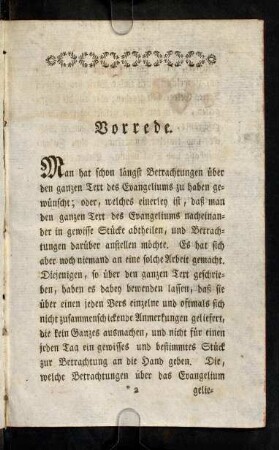 Vorrede.
Man hat schon längst Betrachtungen über
den ganzen Text des Evangeliums zu haben ge-
wünscht; oder, welches einerley ist, daß man
den ganzen Text des Evangeliums nacheinan-
der in gewisse Stücke abtheilen, und Betrach-
tungen darüber anstellen möchte. Es hat sich
aber noch niemand an eine solche Arbeit gemacht.
Diejenigen, so über den ganzen Text geschrie-
ben, haben es dabey bewenden lassen, daß sie
über einen jeden Vers einzelne und oftmals sich
nicht zusammenschickende Anmerkungen geliefert,
die kein Ganzes ausmachen, und nicht für einen
jeden Tag ein gewisses und bestimmtes Stück
zur Betrachtung an die Hand geben. Die,
welche Betrachtungen über das Evangelium
* 2 gelie-